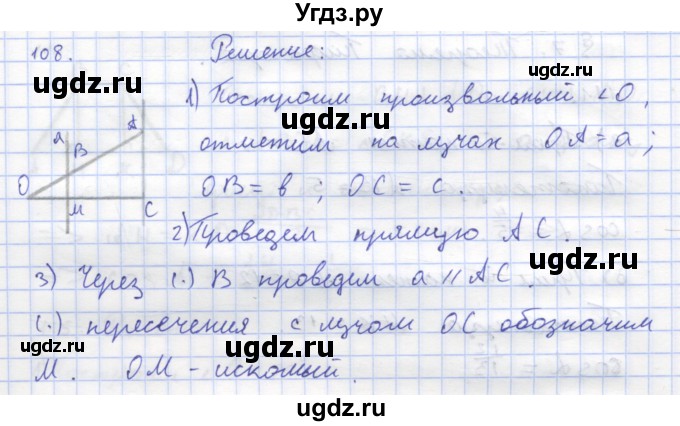 Угдз.ру
108. Решение:
1) Построим произвольный <O,
отметим на лучах OA = a;
OB = в; OC = c.
2) Проведем прямую AC.
3) Через (.) B проведем a // AC.
(.) пересечения с лучом OC обозначим
M. OM - искомый.
A
B
A
O
M
C
ugdz.ru
ugdz.ru
ugdz.ru
ugdz.ru
ugdz.ru
ugdz.ru
ugdz.ru
ugdz.ru
ugdz.ru